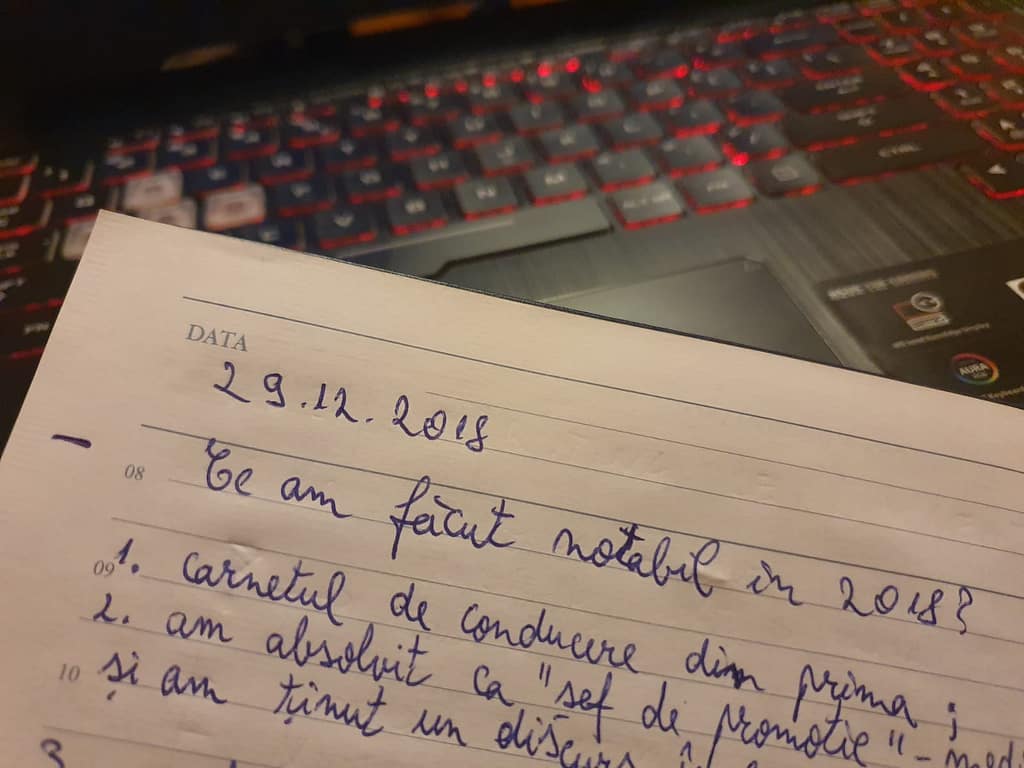 DATA
29.12.2018
08
Ce am făcut notabil în 2018?
09 1. carnetul de conducere din prima ;
2. am absolvit ca "șef de promoție" -
10 și am ținut un discurs
3
AURA
CTRL